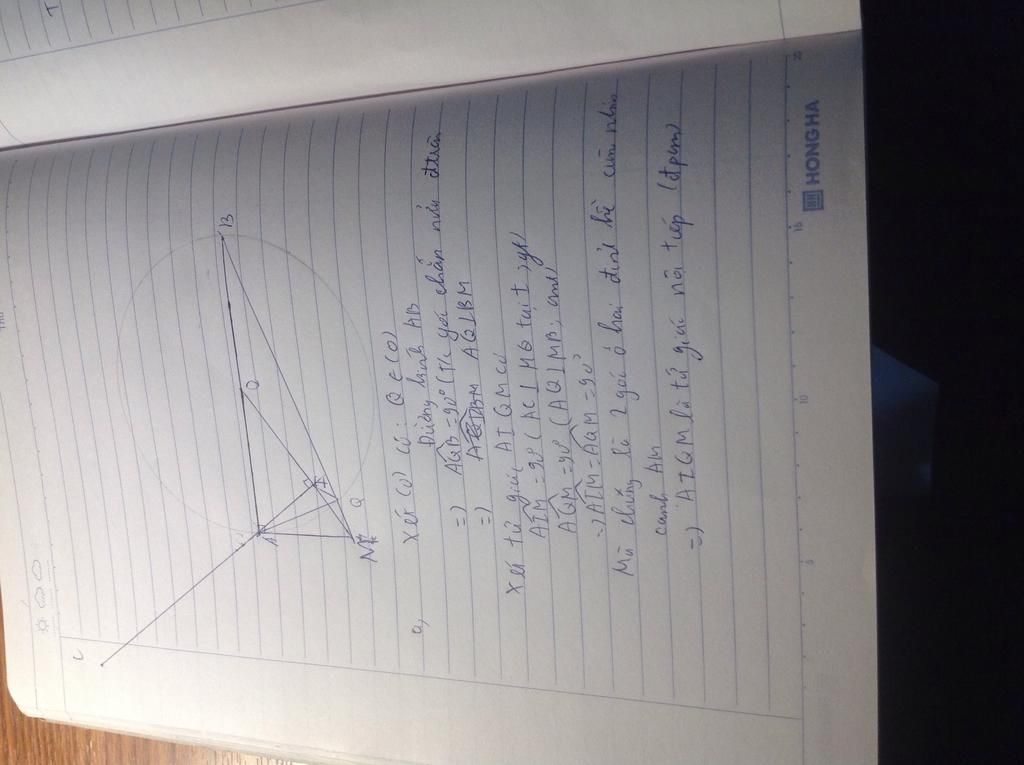 C
A
O
B
I
Q
M
a, Xét (O) có: Q ∈ (O)
Đường kính AB
=> AQB = 90° (góc chắn nửa đtròn
=> AQ ⊥ BM
Xét tứ giác AIQM có
AIM = 90° (AC ⊥ MO tại I) gt
AQM = 90° (AQ ⊥ MB; cmt
=> AIM = AQM = 90°
Mà chúng là 2 góc ở hai đỉnh kề cùng nhìn
cạnh AM
=> AIQM là tứ giác nội tiếp (đpcm)
5
10
15
20
HONG HA